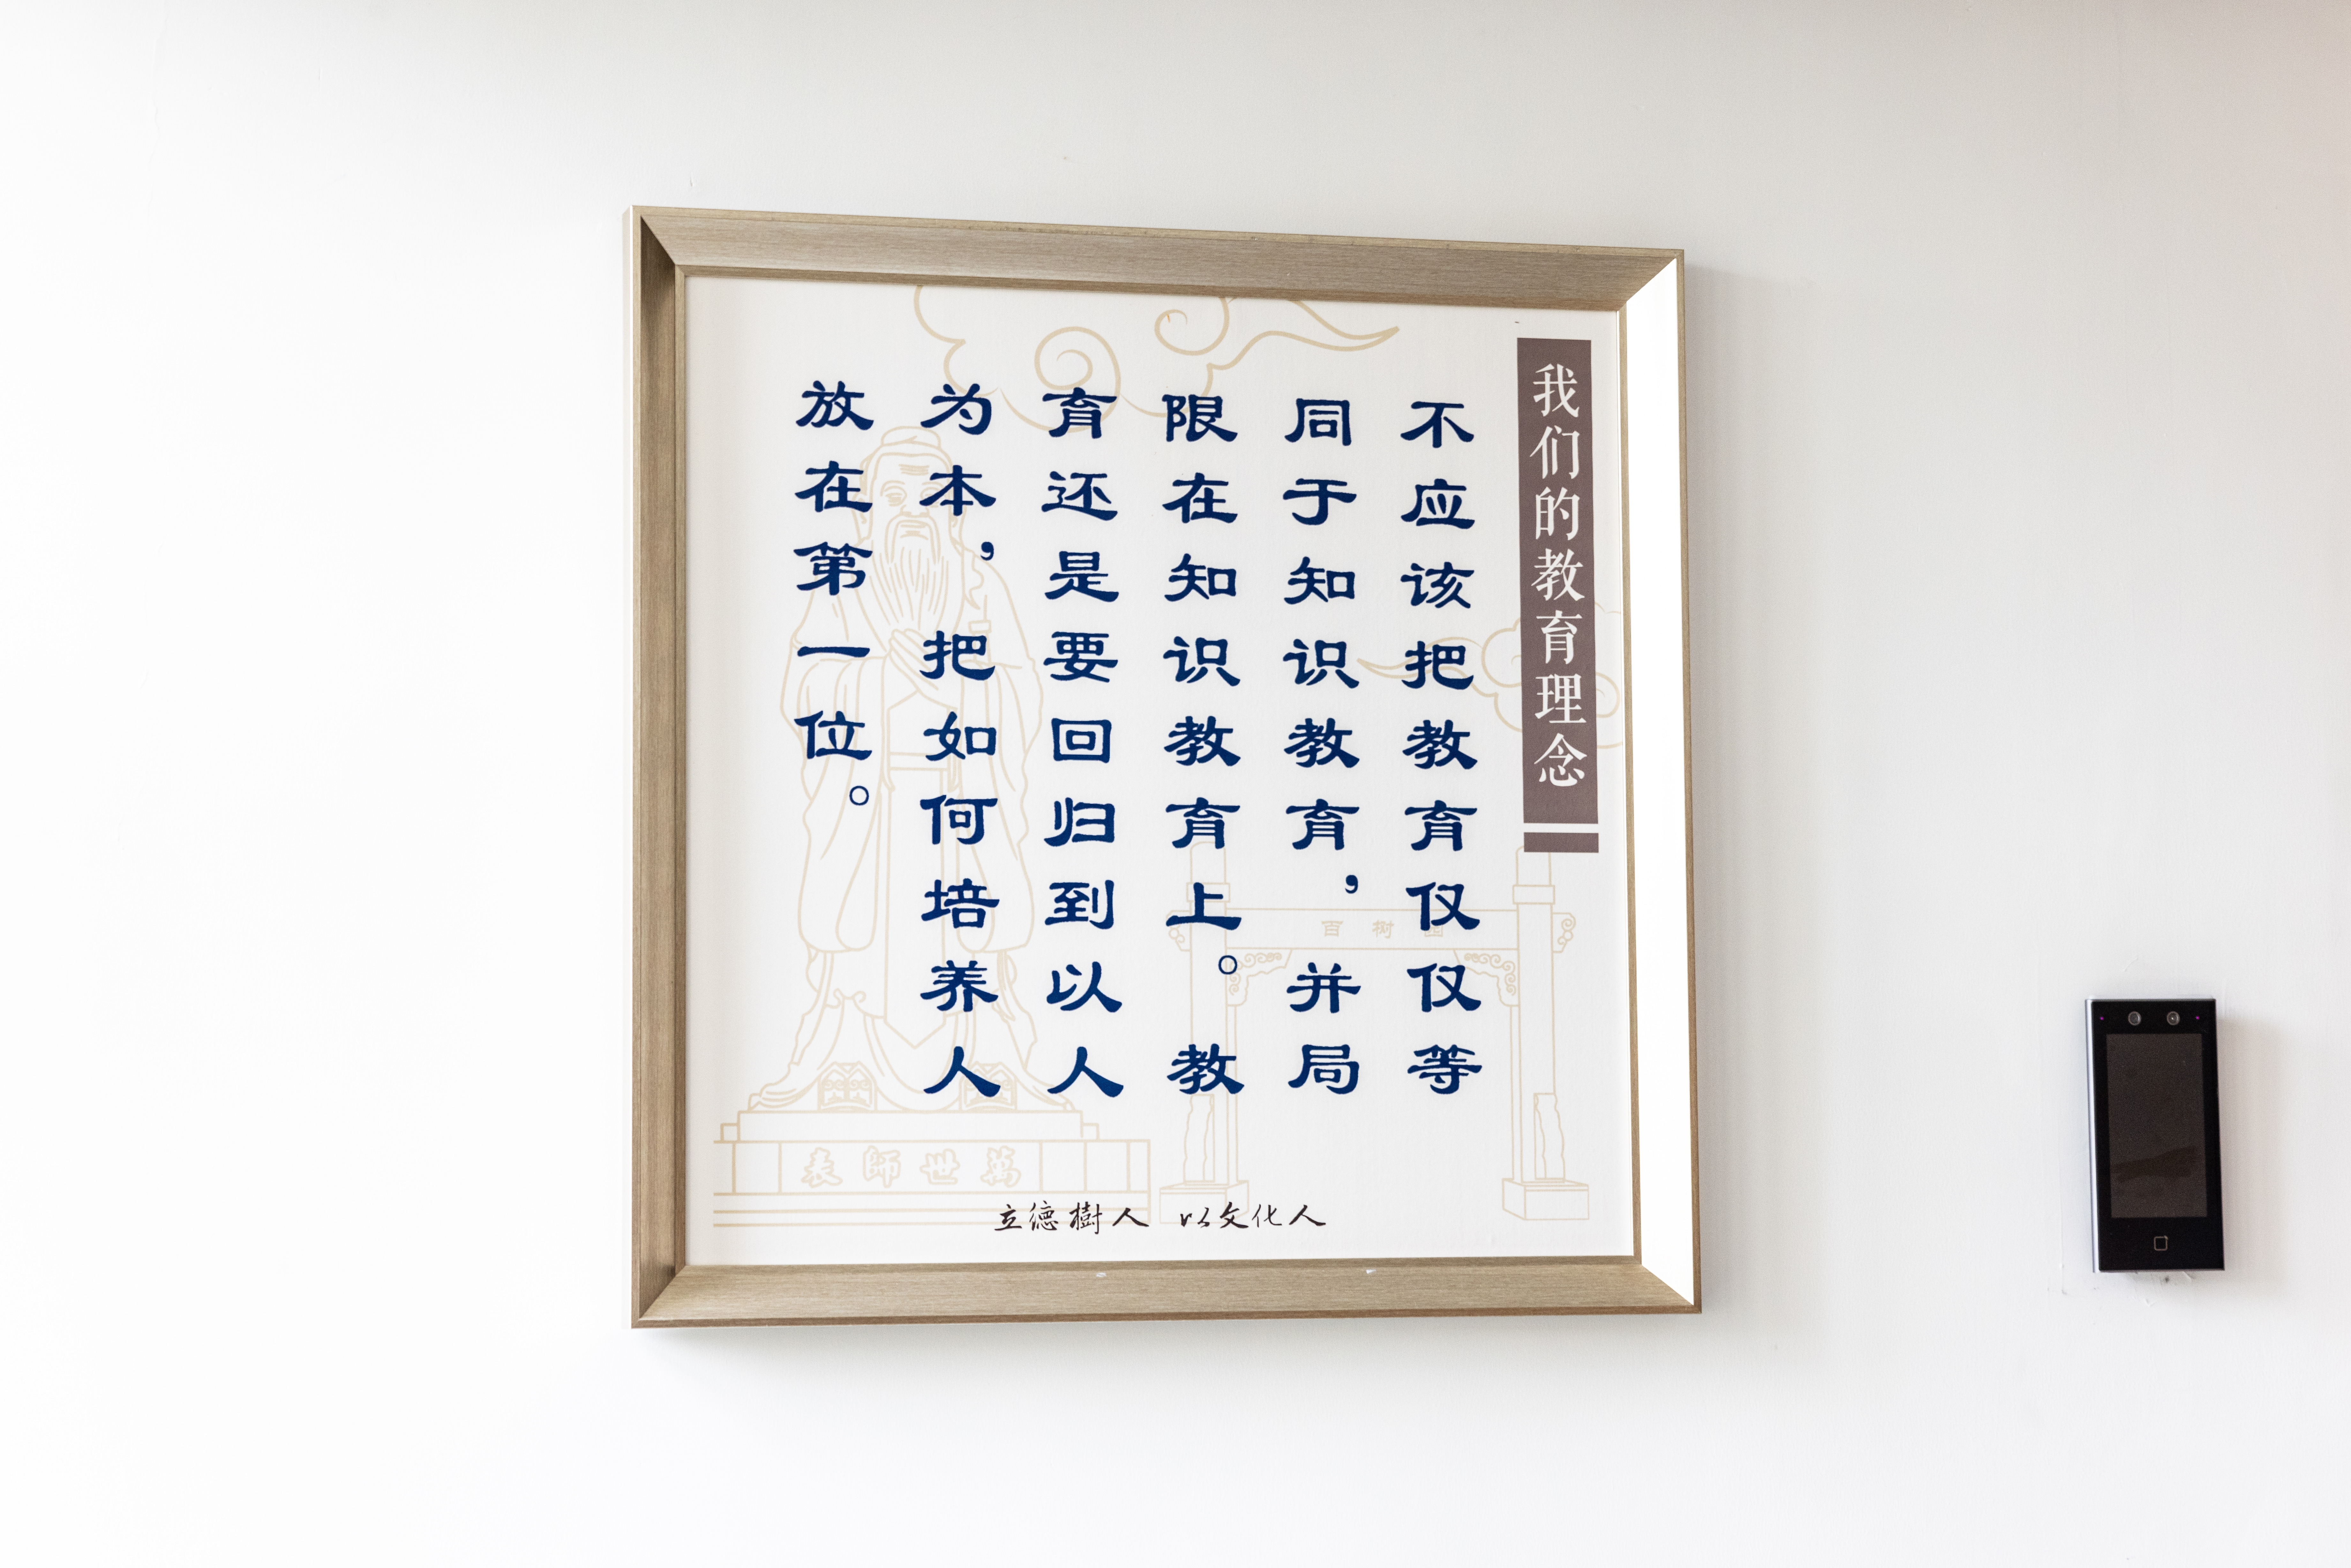 我们的教育理念
不应该把教育仅仅等
同于知识教育，并局
限在知识教育上。教
育还是要回归到以人
为本，把如何培养人
放在第一位。
百树园
萬世師表
立德樹人 以文化人